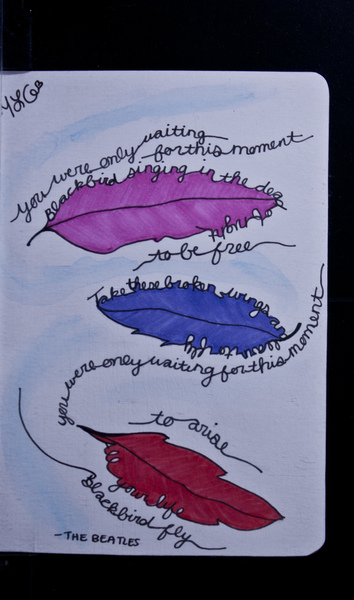 YLGB
you were only waiting
for this moment
Blackbird singing in the dead
of night
to be free
Take these broken wings
learn to fly
you were only waiting for this moment
to arise
your life
Blackbird fly
-THE BEATLES